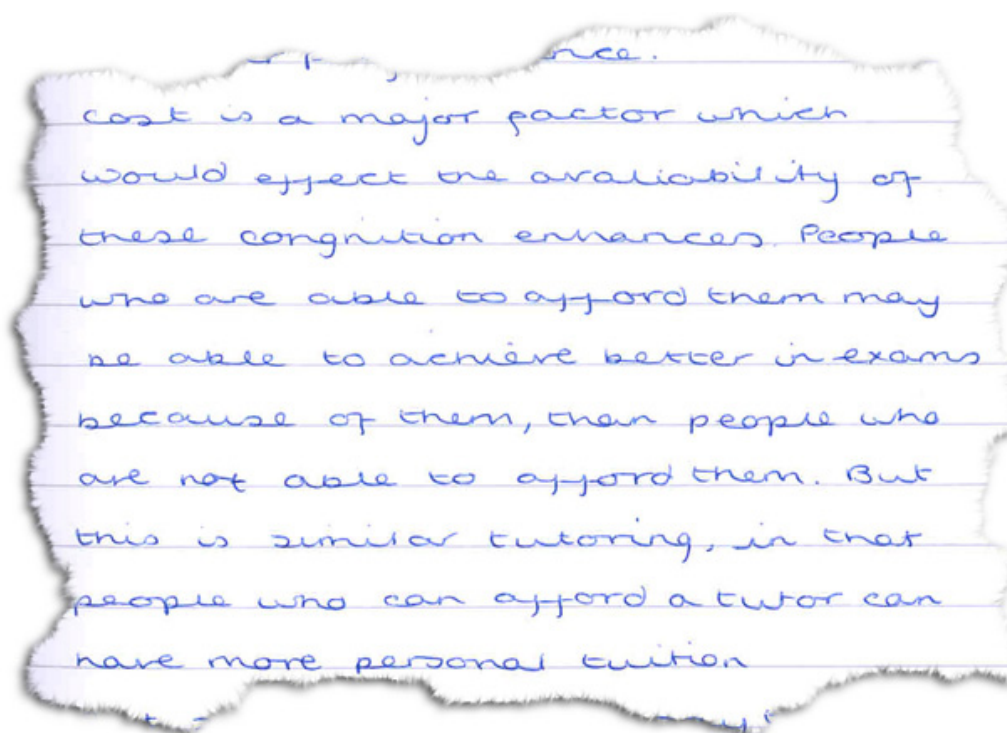 cost is a major factor which
would effect the avaliability of
these congnition enhances. People
who are able to afford them may
be able to achieve better in exams
because of them, than people who
are not able to afford them. But
this is similar tutoring, in that
people who can afford a tutor can
have more personal tuition